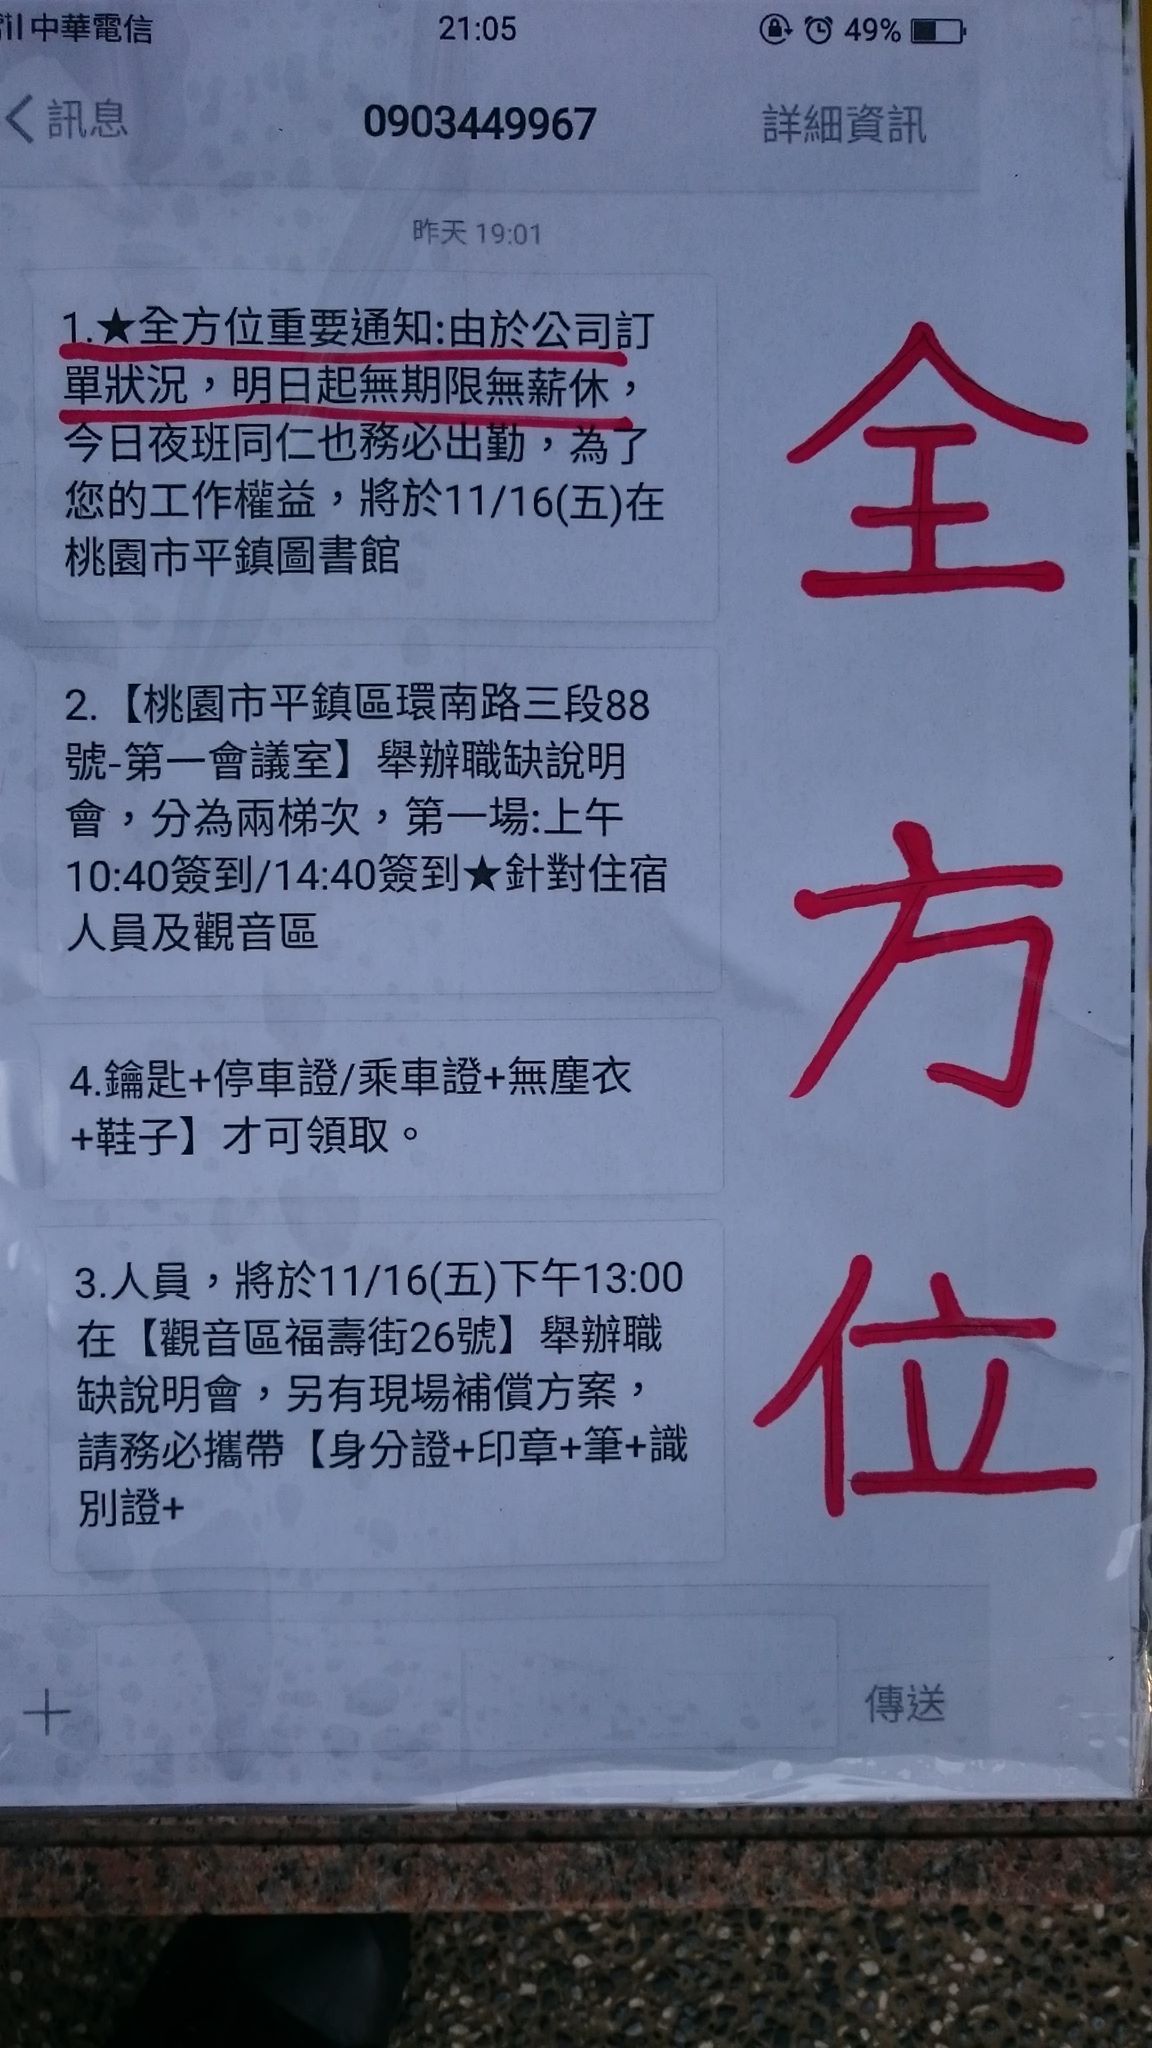 中華電信 21:05 49%
訊息 0903449967 詳細資訊
昨天 19:01
1.★全方位重要通知:由於公司訂
單狀況，明日起無期限無薪休，
今日夜班同仁也務必出勤，為了
您的工作權益，將於11/16(五)在
桃園市平鎮圖書館
2.【桃園市平鎮區環南路三段88
號-第一會議室】舉辦職缺說明
會，分為兩梯次，第一場:上午
10:40簽到/14:40簽到★針對住宿
人員及觀音區
4.鑰匙+停車證/乘車證+無塵衣
+鞋子】才可領取。
3.人員，將於11/16(五)下午13:00
在【觀音區福壽街26號】舉辦職
缺說明會，另有現場補償方案，
請務必攜帶【身分證+印章+筆+識
別證+
傳送
全
方
位